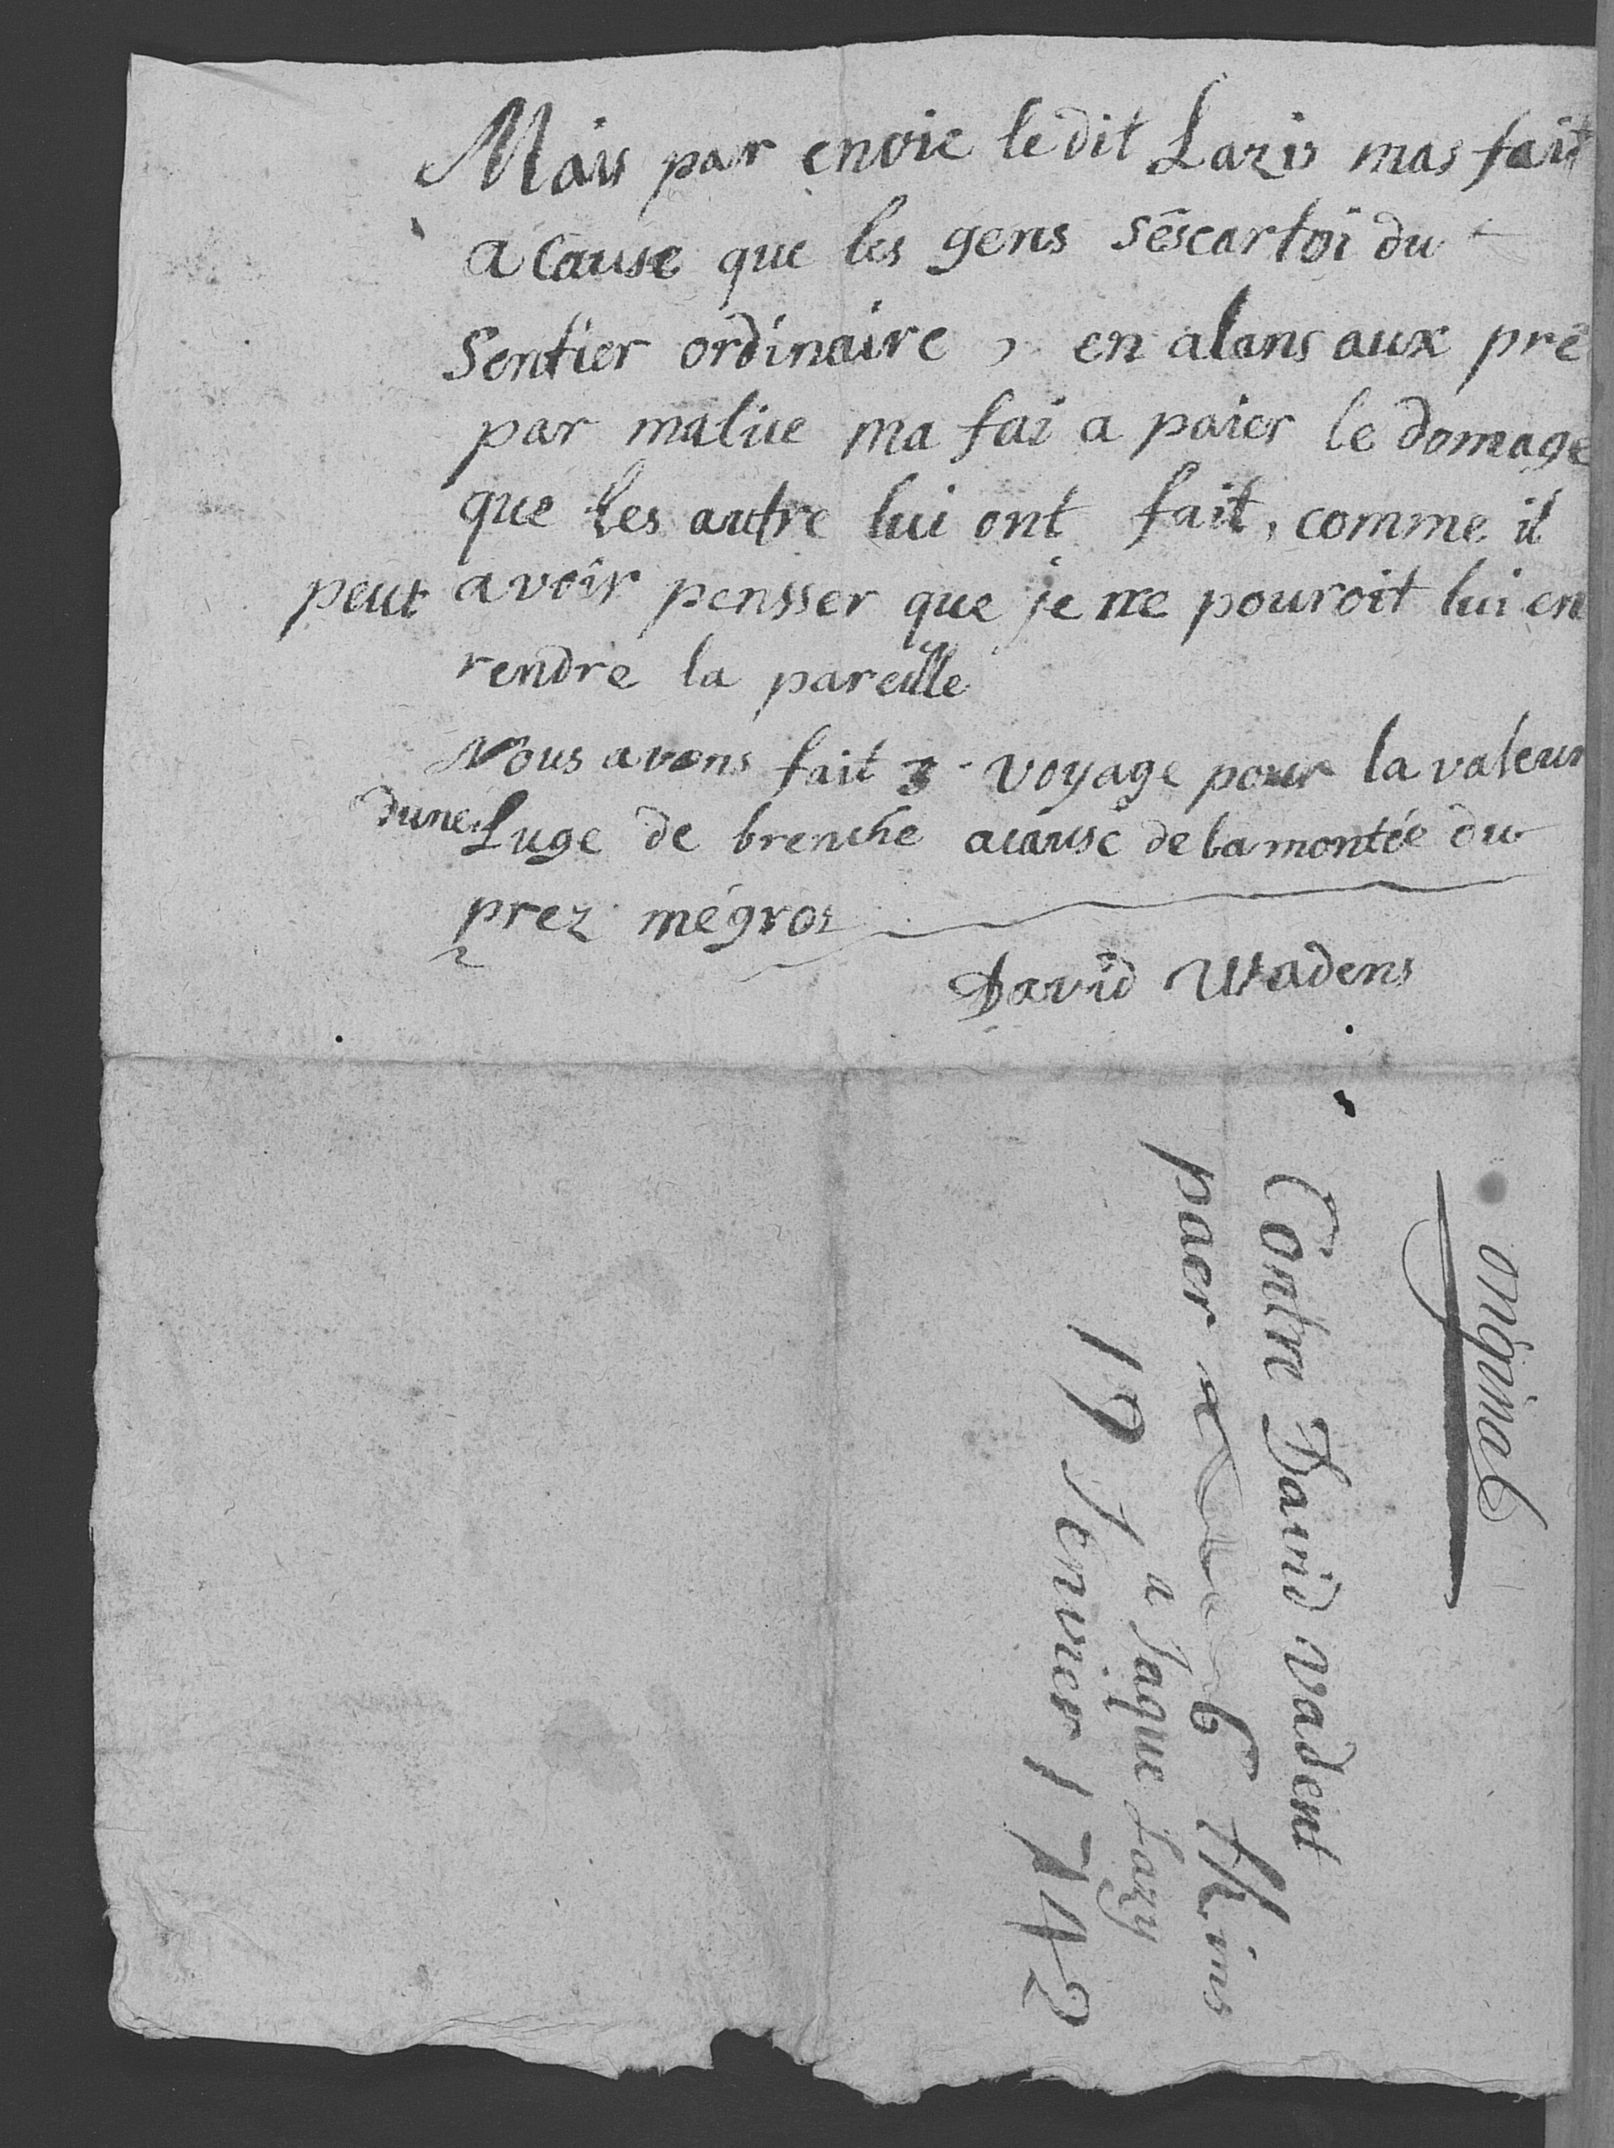 Mais par envie ledit Lazis mas fait
a Cause que les gens sēscartoi du
Sentier ordinaire, en alans aux pré
par malice ma fai a paier le domage
que les autre lui ont fait, comme il
peut avoir pensser que je ne pouroit lui en
rendre la pareille
Nous avons fait 3 - voyage pour la valeur
dune Luge de brenche acause de la montée du
prez mégroz
David Wadens
original
Contre David Vadent
paer 6
a Jaque Lazy
19 Jenvier 1742